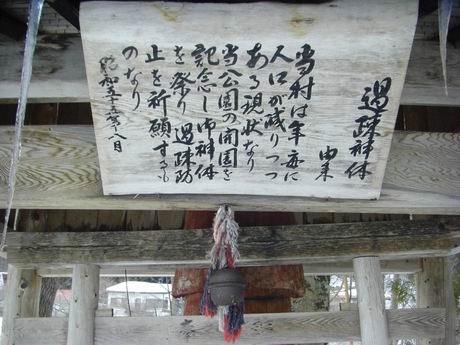 過疎神体
由来
当村は年々に
人口が減りつつ
ある現状なり
当公園の開園を
記念し御神体
を祭り過疎防
止を祈願するも
のなり
昭和五十
年八月